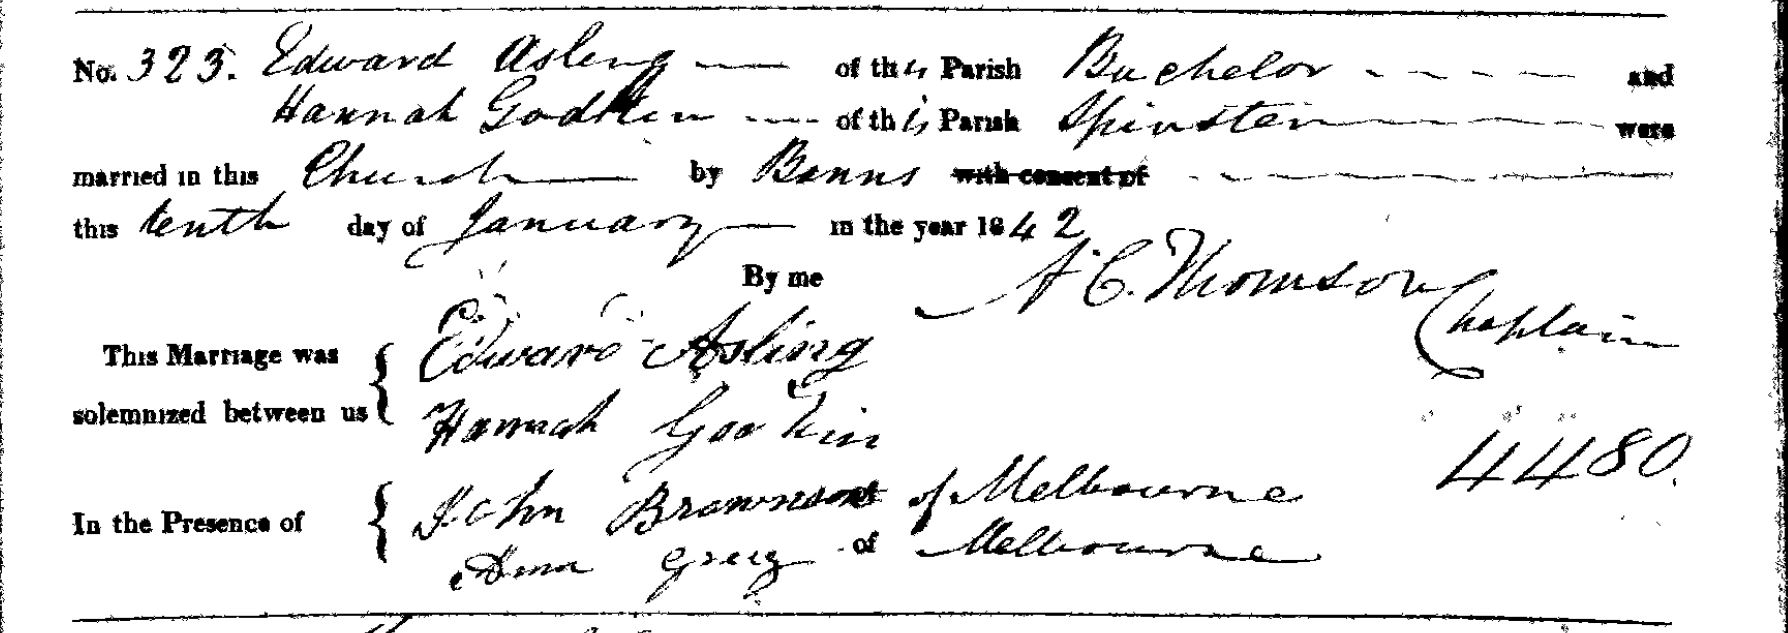 No. 323. Edward Asling of this Parish Bachelor and
Hannah Godkin of this Parish Spinster were
married in this Church by Banns with consent of
this tenth day of January in the year 1842
By me A C. Thomson Chaplain
This Marriage was solemnized between us { Edward Asling
Hannah Godkin
4480.
In the Presence of { John Brownson of Melbourne
Ann Greig of Melbourne